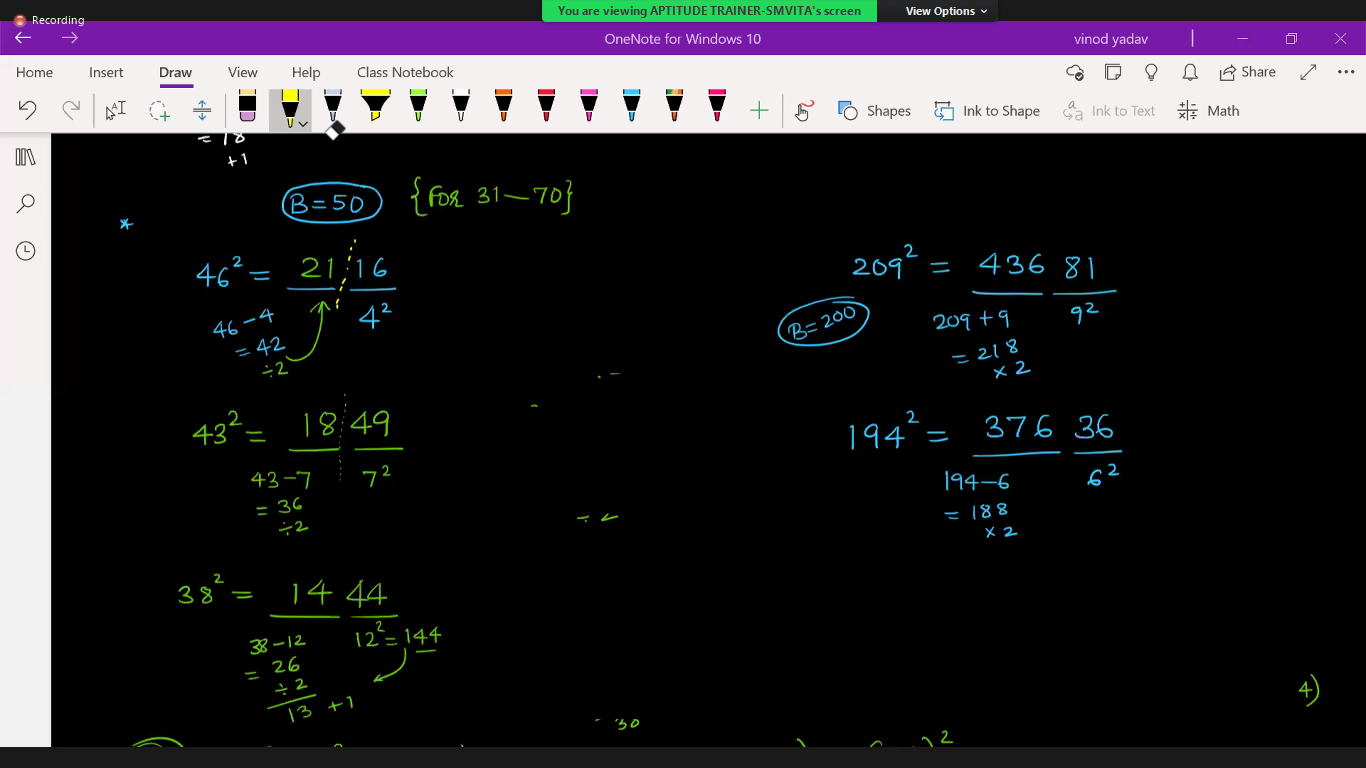 Recording
You are viewing APTITUDE TRAINER-SMVITA's screen
View Options
OneNote for Windows 10
vinod yadav
Home Insert Draw View Help Class Notebook
Share
Shapes
Ink to Shape
Ink to Text
Math
= 18
+1
*
B=50 {For 31—70}
46² = 21 16
46-4 4²
= 42
÷2
43² = 18 49
43-7 7²
= 36
÷2
38² = 14 44
38-12 12² = 144
= 26
÷2
13 +1
30
209² = 436 81
B=200
209+9 9²
= 218
×2
194² = 376 36
194-6 6²
= 188
×2
4)